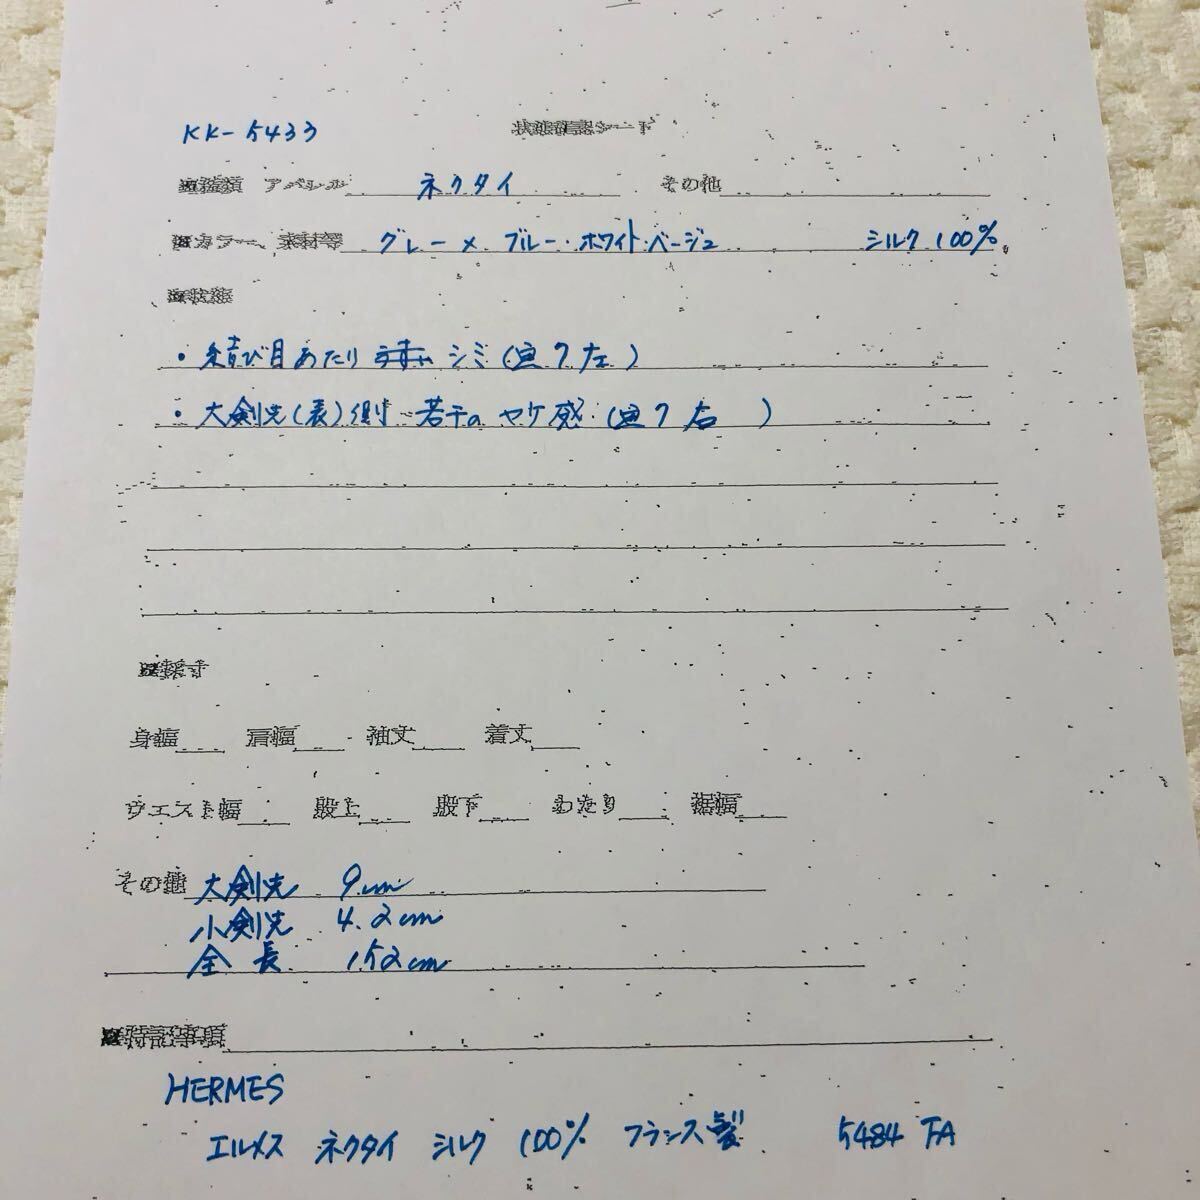 KK-5433 状態確認シート
■種類 アパレル ネクタイ その他
■カラー、素材等 グレー×ブルー・ホワイト・ベージュ シルク100%
■状態
・結び目あたり シミ(画7左)
・大剣先(表)側 若干の ヤケ感(画7右)
■採寸
身幅 肩幅 袖丈 着丈
ウエスト幅 股上 股下 わたり 裾幅
その他 大剣先 9cm
小剣先 4.2cm
全長 152cm
■特記事項
HERMES
エルメス ネクタイ シルク 100% フランス製 5484 TA